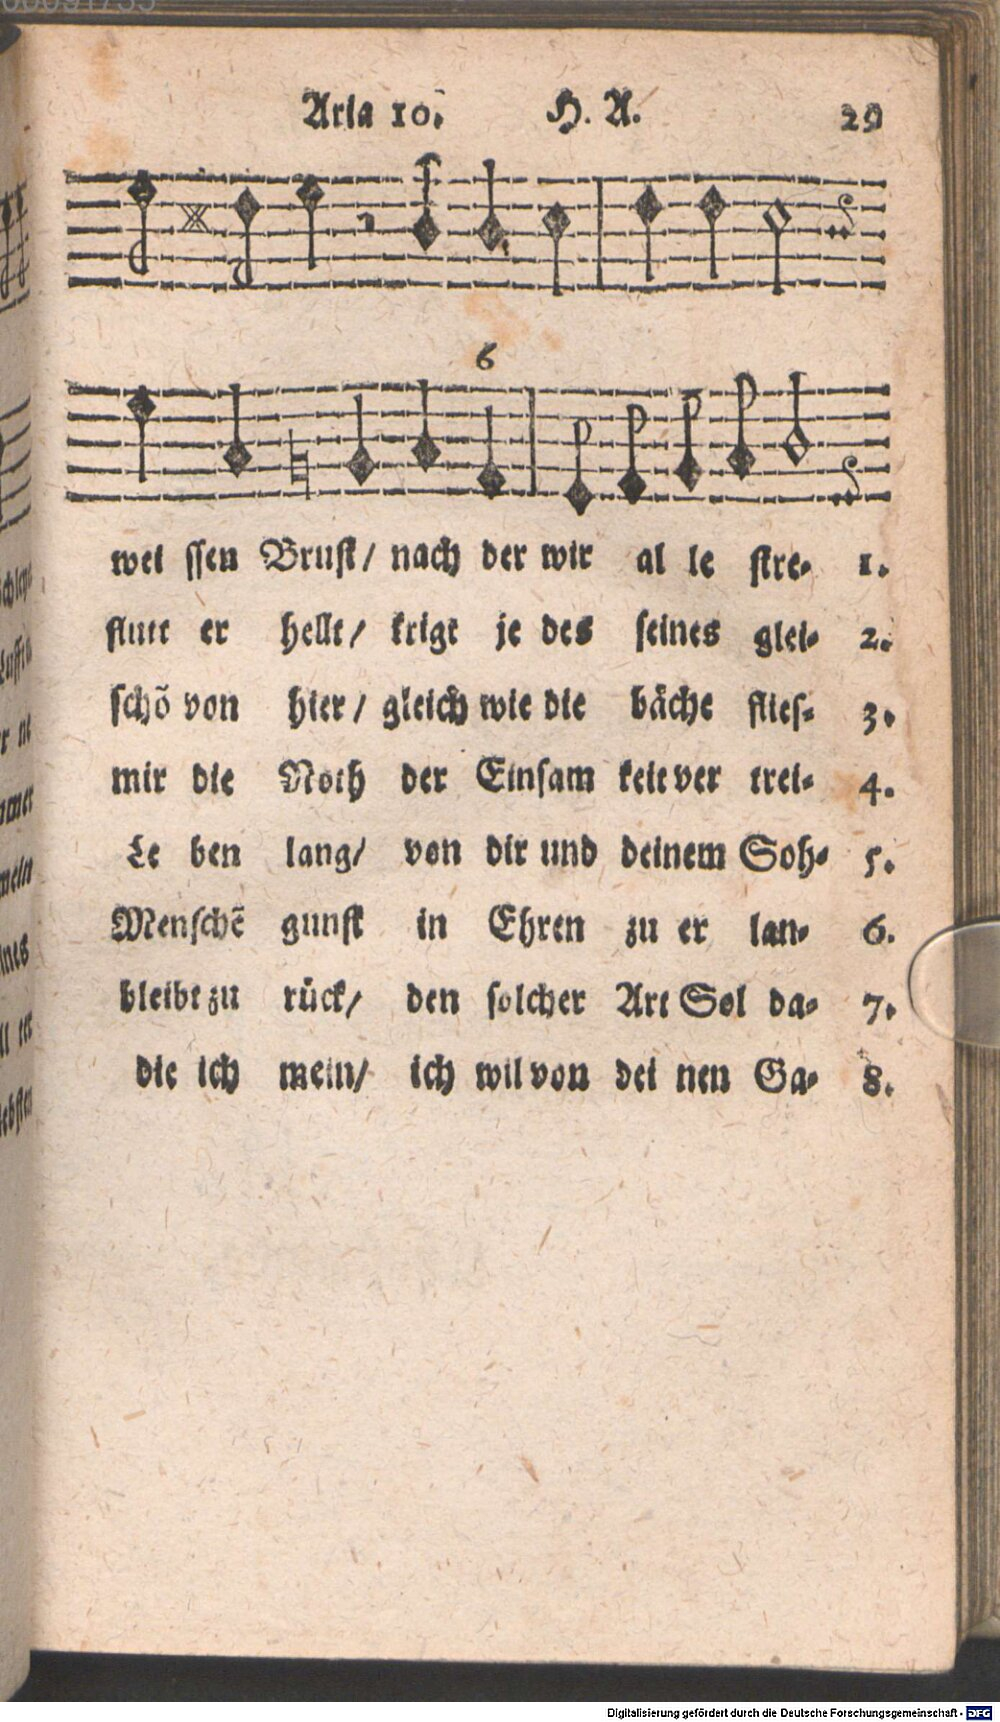 Aria 10. H. A. 29
6
wei ssen Brust/ nach der wir al le stre- 1.
flutt er hellt/ krigt je des seines glei- 2.
schõ von hier/ gleich wie die bäche flies- 3.
mir die Noth der Einsam keit ver trei- 4.
Le ben lang/ von dir und deinem Soh- 5.
Menschẽ gunst in Ehren zu er lan- 6.
bleibt zu rück/ den solcher Art Sol da- 7.
die ich mein/ ich wil von dei nen Ga- 8.
Digitalisierung gefördert durch die Deutsche Forschungsgemeinschaft - DFG